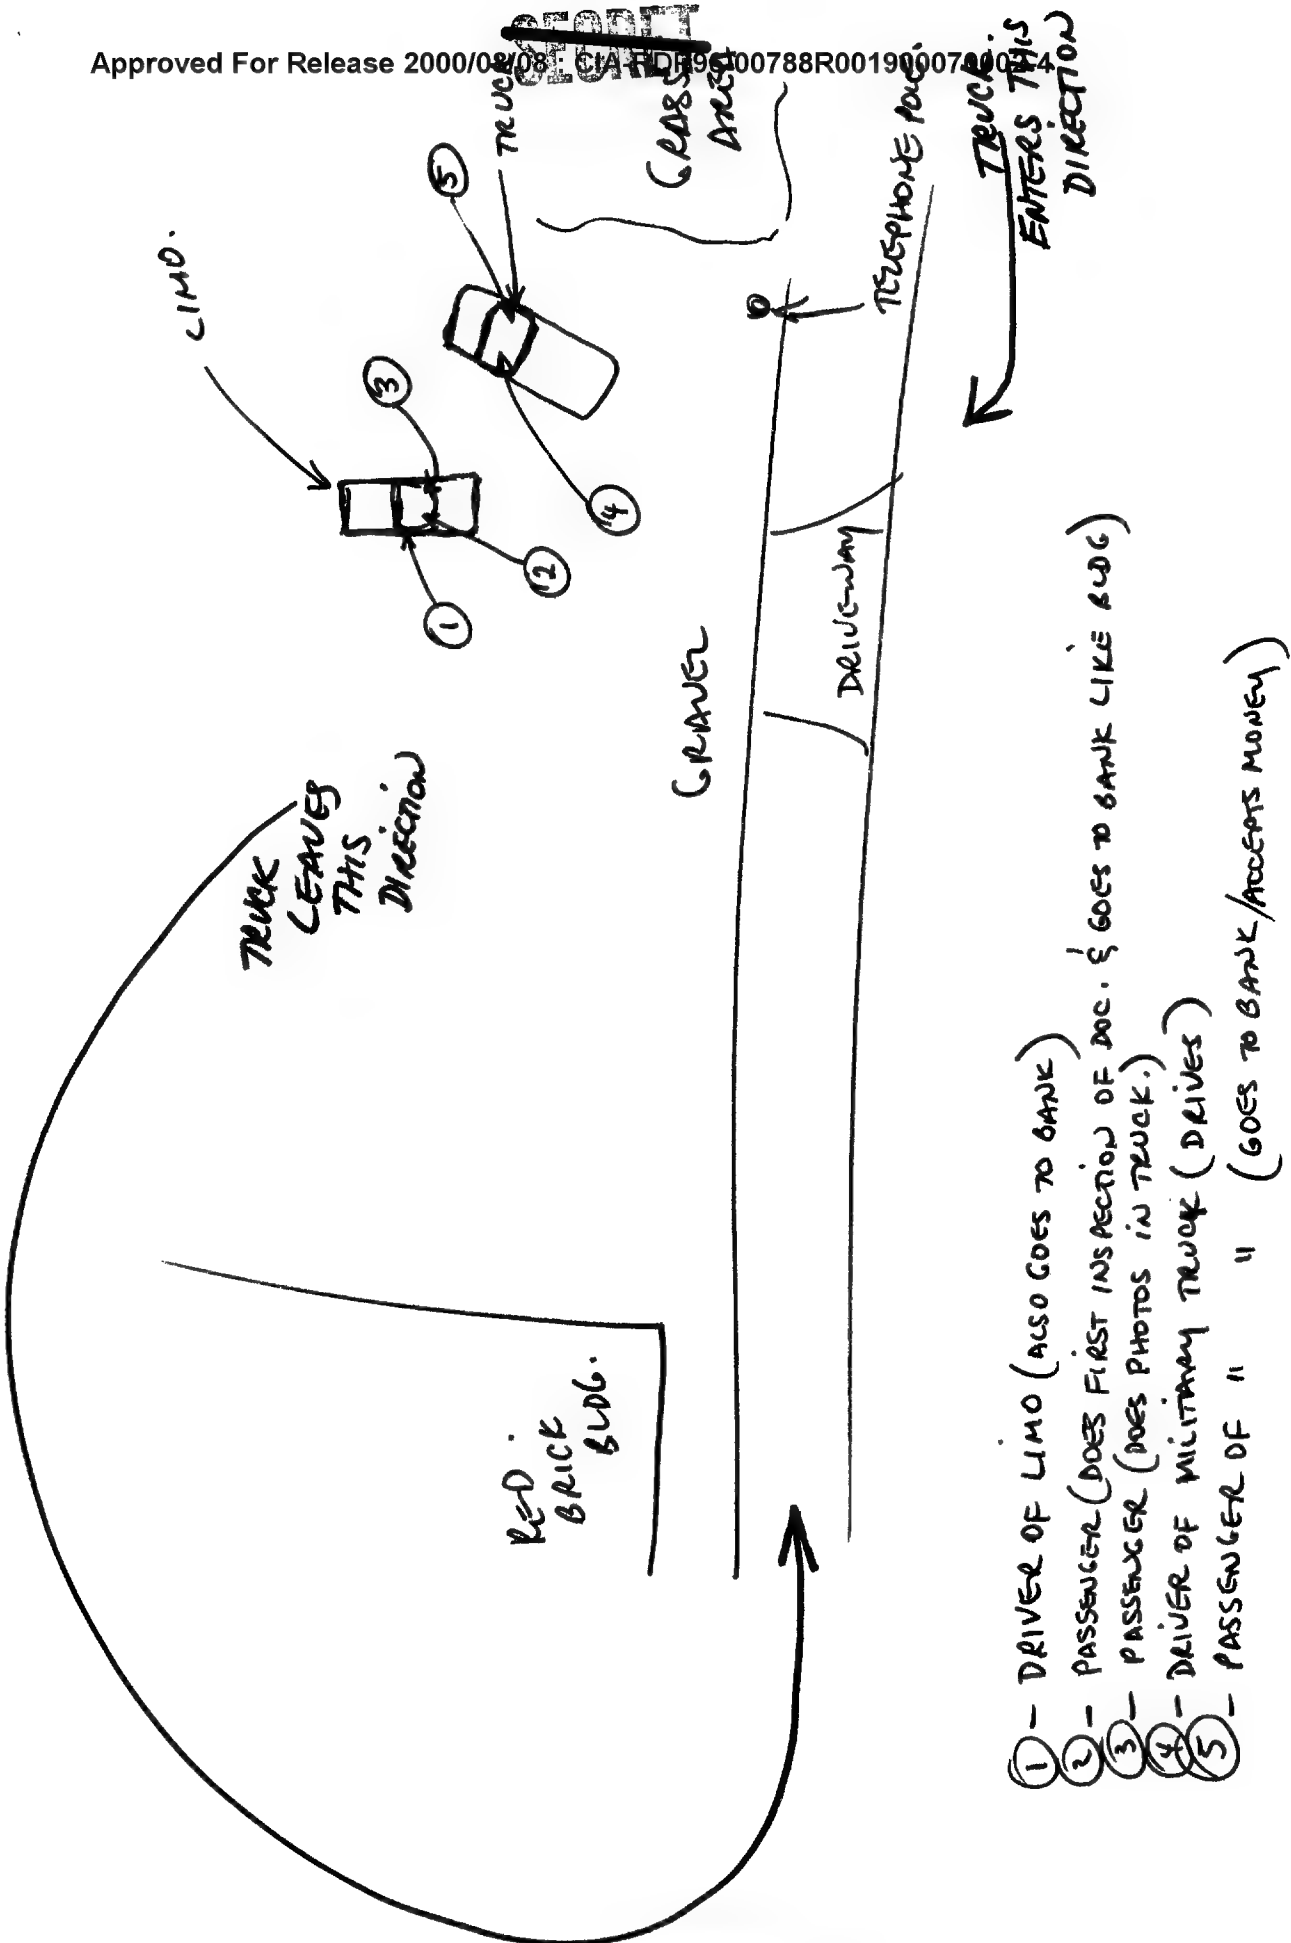 SECRET
Approved For Release 2000/08/08 : CIA-RDP96-00788R001900070002-4
LIMO.
TRUCK
GRASS
AREA
TELEPHONE POLE.
TRUCK.
ENTERS THIS
DIRECTION
5
3
1
2
4
TRUCK
LEAVES
THIS
DIRECTION
GRAVEL
DRIVEWAY
RED
BRICK
BLDG.
1 - DRIVER OF LIMO (ALSO GOES TO BANK)
2 - PASSENGER (DOES FIRST INSPECTION OF DOC. & GOES TO BANK LIKE BLDG)
3 - PASSENGER (DOES PHOTOS IN TRUCK.)
4 - DRIVER OF MILITARY TRUCK (DRIVES)
5 - PASSENGER OF " " (GOES TO BANK/ACCEPTS MONEY)